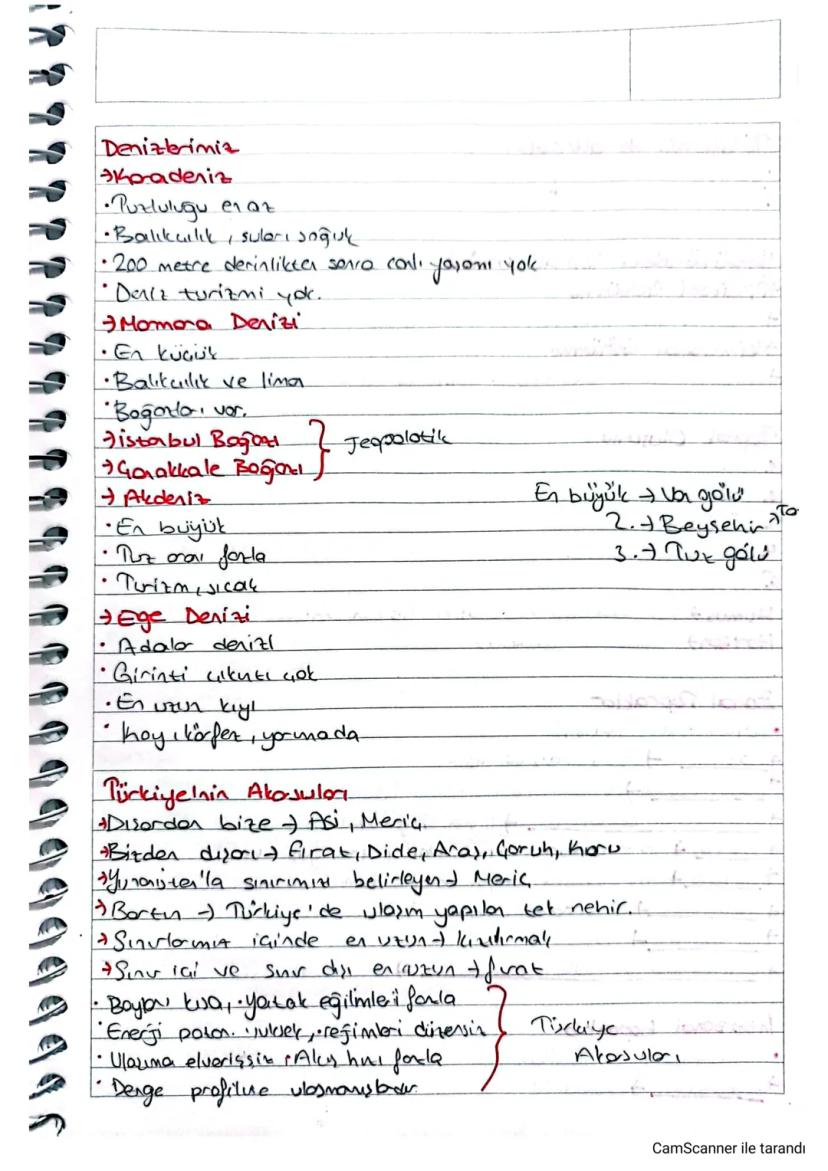 Denizlerimiz
→Karadeniz
• Tuzluluğu en az
• Balıkçılık, suları soğuk
• 200 metre derinlikten sonra canlı yaşamı yok
• Deniz turizmi yok.
→Marmara Denizi
• En küçük
• Balıkçılık ve liman
• Boğazları var.
→İstanbul Boğazı
→Çanakkale Boğazı
} Jeopolotik
→Akdeniz
• En büyük
• Tuz oranı fazla
• Turizm, sıcak
En büyük → Van gölü
2. → Beyşehir
3. → Tuz gölü
→Ege Denizi
• Adalar denizi
• Girinti çıkıntı çok
• En uzun kıyı
• koy, körfez, yarımada
Türkiye'nin Akarsuları
→Dışardan bize → Asi, Meriç
→Bizden dışarı → Fırat, Dicle, Aras, Çoruh, Kura
→Yunanistan'la sınırımızı belirleyen → Meriç
→Bartın → Türkiye'de ulaşım yapılan tek nehir.
→Sınırlarımız içinde en uzun → kızılırmak
→Sınır içi ve sınır dışı en uzun → fırat
• Boyları kısa, • yatak eğilimleri fazla
• Enerji potan. yüksek, • rejimleri düzensiz
• Ulaşıma elverişsiz • Akış hızı fazla
• Denge profiline ulaşmamışlardır
} Türkiye
Akarsuları
CamScanner ile tarandı